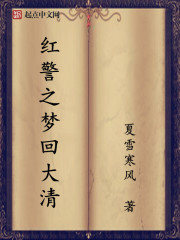 起点中文网
红警之梦回大清
夏雪寒风 著